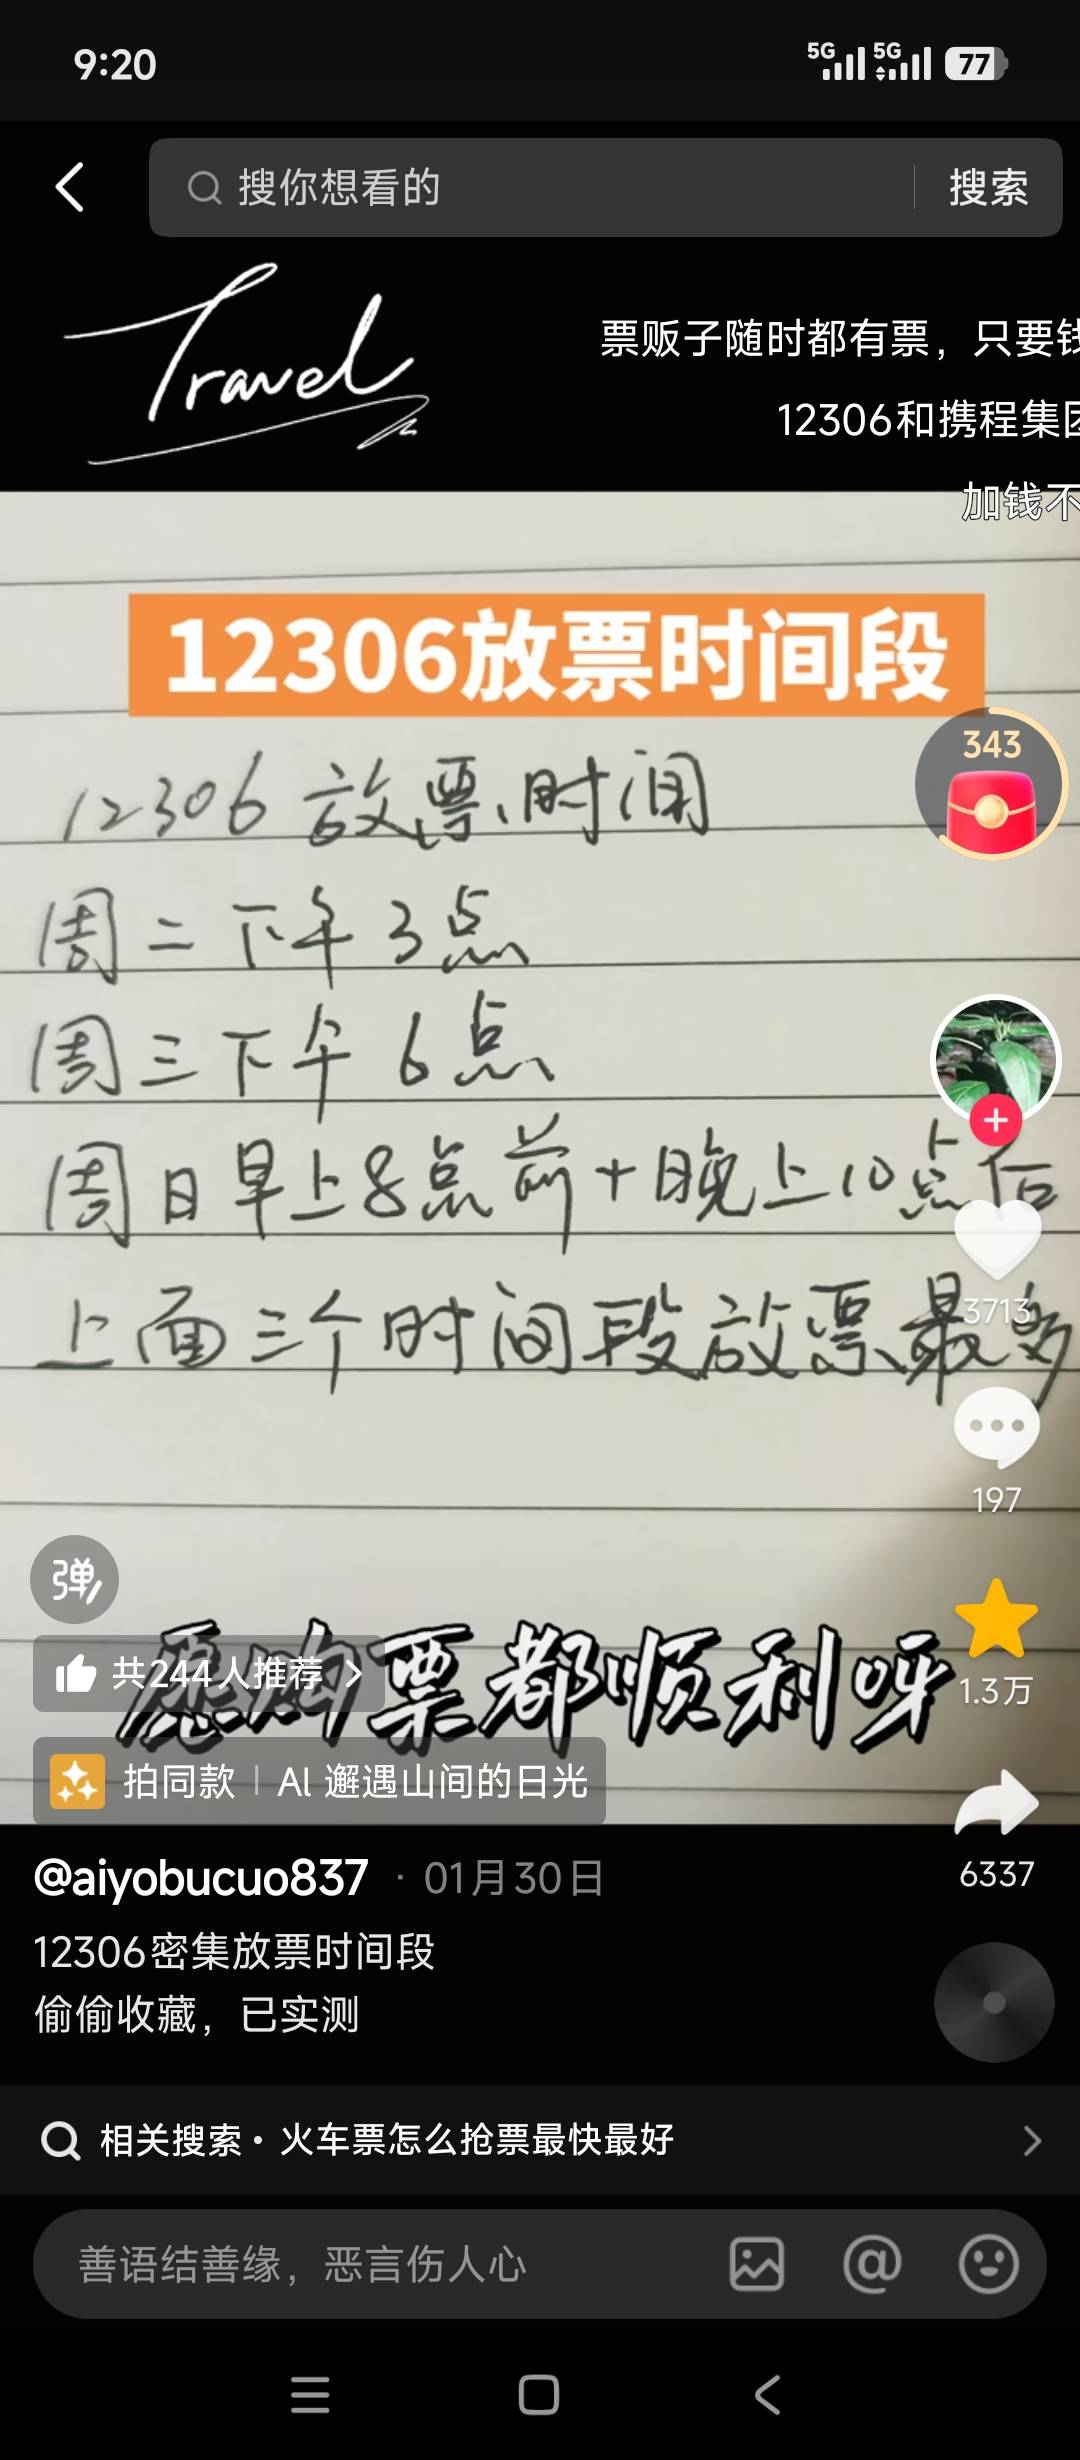 9:20
5G 5G 77
搜你想看的 搜索
Travel
票贩子随时都有票，只要钱
12306和携程集团
加钱不
12306放票时间段
343
12306放票时间
周二下午3点
周三下午6点
周日早上8点前+晚上10点后
上面三个时间段放票最多
3713
197
弹
愿购票都顺利呀
共244人推荐
1.3万
拍同款 | AI 邂逅山间的日光
@aiyobucuo837 · 01月30日
6337
12306密集放票时间段
偷偷收藏，已实测
相关搜索·火车票怎么抢票最快最好
善语结善缘，恶言伤人心